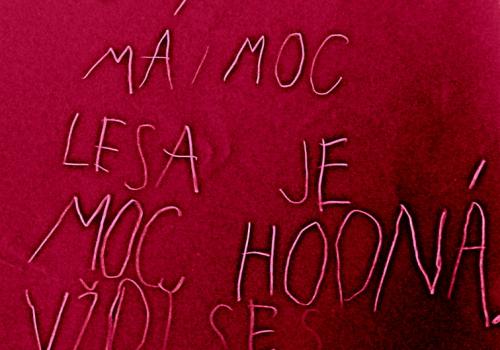 MÁ MOC
LESA JE
MOC HODNÁ
VŽDY SE